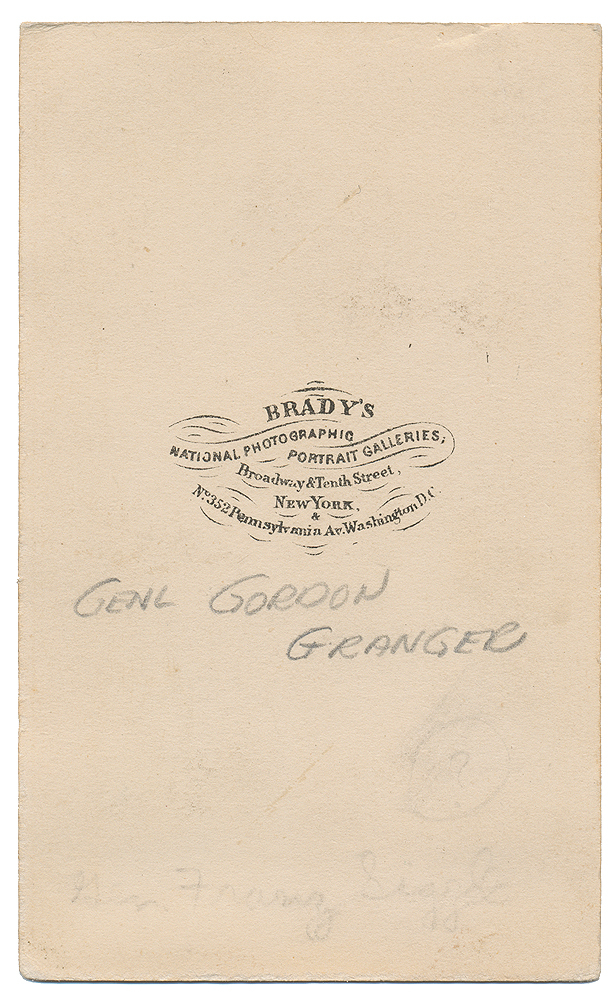 BRADY'S
NATIONAL PHOTOGRAPHIC
PORTRAIT GALLERIES,
Broadway & Tenth Street,
NEW YORK,
&
No. 352 Pennsylvania Av. Washington D.C.
GENL GORDON
GRANGER
Franz Sigel